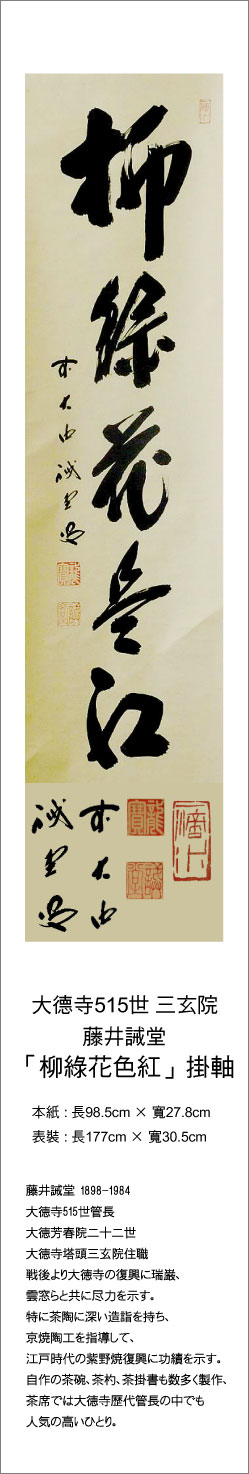 柳綠花色紅
前大由
誡堂曳
誡堂曳
前大由
龍寶
誡堂
一滴水
大德寺515世 三玄院
藤井誡堂
「柳綠花色紅」掛軸
本紙:長98.5cm × 寬27.8cm
表裝:長177cm × 寬30.5cm
藤井誡堂 1898-1984
大徳寺515世管長
大徳芳春院二十二世
大徳寺塔頭三玄院住職
戦後より大徳寺の復興に瑞巌、
雲窓らと共に尽力を示す。
特に茶陶に深い造詣を持ち、
京焼陶工を指導して、
江戸時代の紫野焼復興に功績を示す。
自作の茶碗、茶杓、茶掛書も数多く製作、
茶席では大徳寺歴代管長の中でも
人気の高いひとり。